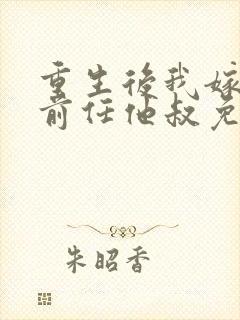 重生後我嫁
前任他叔免
朱昭香